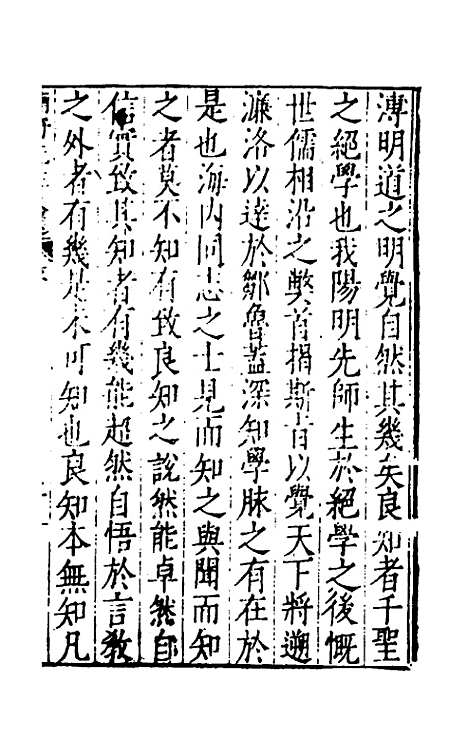 溥明道之明覺自然其幾矣良知者千聖
之絕學也我陽明先師生於絕學之後慨
世儒相沿之弊首揭斯旨以覺天下將遡
濂洛以達於鄒魯蓋深知學脉之有在於
是也海内同志之士見而知之與聞而知
之者莫不知有致良知之說然能卓然自
信實致其知者有幾能超然自悟於言教
之外者有幾是未可知也良知本無知凡